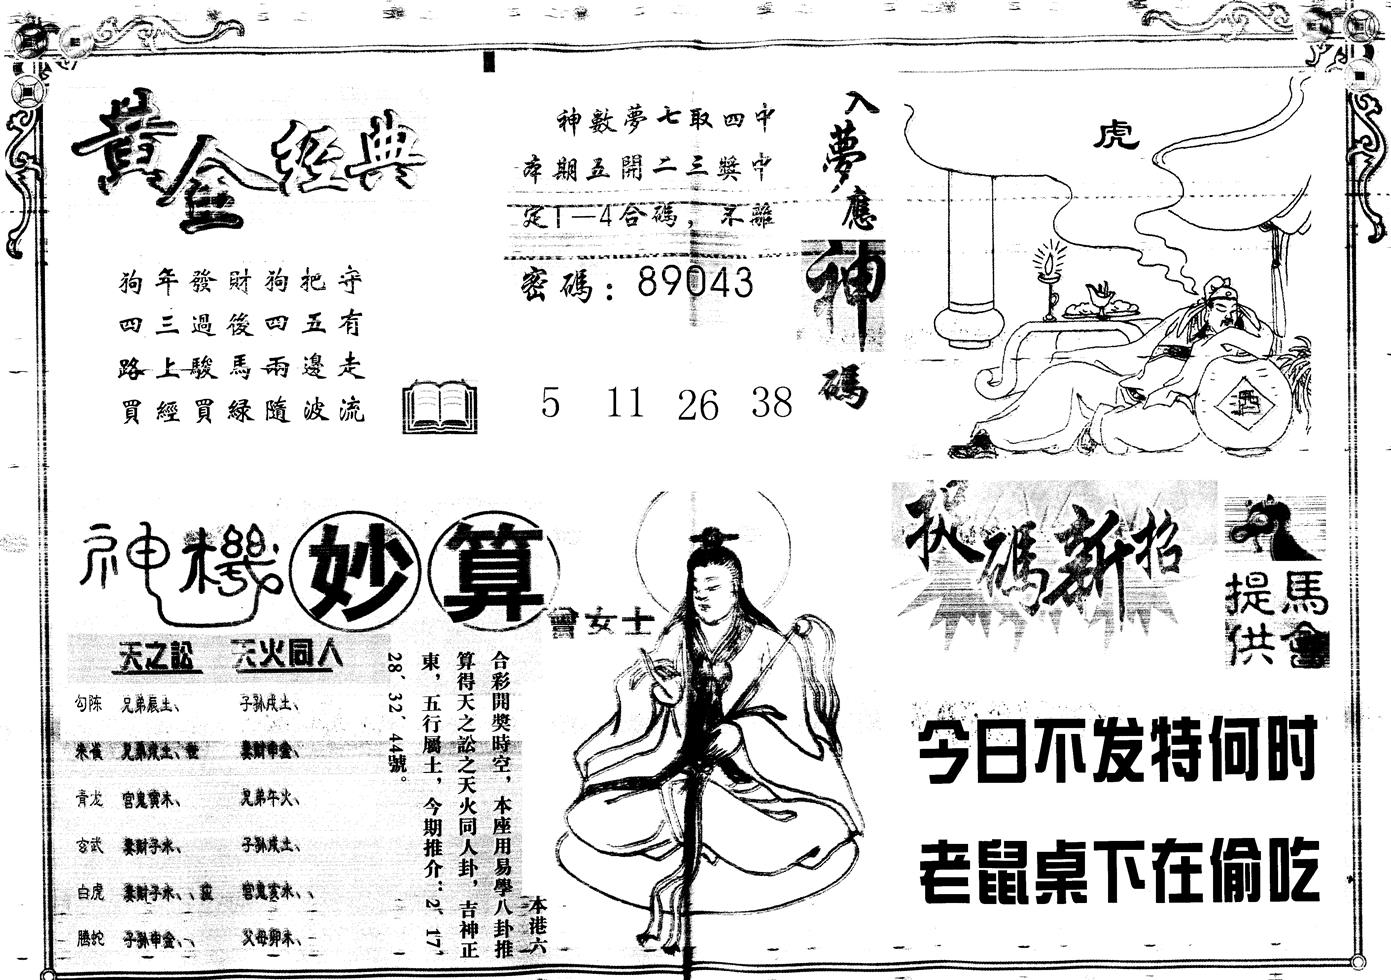 黃金經典
狗年發財狗把守
四三過後四五有
路上駿馬兩邊走
買經買緑隨波流
神數夢七取四中
本期五開二三獎中
定1—4合碼，不離
密碼：89043
5 11 26 38
入夢應神碼
虎
酒
神機妙算
曾女士
天之訟 天火同人
勾陈 兄弟辰土、 子孙戌土、
朱雀 兄弟戌土、世 妻財申金、
青龙 官鬼寅木、 兄弟午火、
玄武 妻財子水、 子孙戌土、
白虎 妻財子水、、應 官鬼亥水、、
騰蛇 子孙申金、、 父母卯木、
本港六
合彩開獎時空，本座用易學八卦推
算得天之訟之天火同人卦，吉神正
東，五行屬土，今期推介：2、17、
28、32、44號。
捉碼新招
馬會
提供
今日不发特何时
老鼠桌下在偷吃